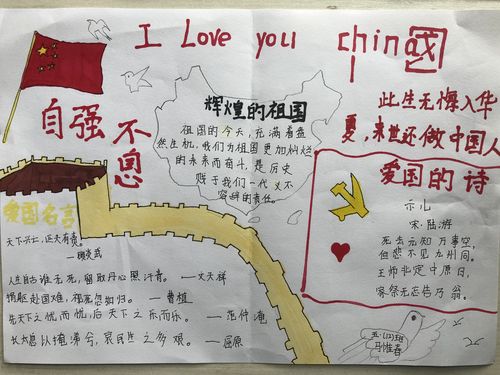 I Love you china
自强不息
辉煌的祖国
祖国的今天,充满着盎
然生机,我们为祖国更加灿烂
的未来而奋斗,是历史
赋于我们一代义不
容辞的责任
此生无悔入华
夏,来世还做中国人
爱国的诗
示儿
宋·陆游
死去元知万事空,
但悲不见九州同。
王师北定中原日,
家祭无忘告乃翁。
爱国名言
天下兴亡,匹夫有责。
—顾炎武
人生自古谁无死,留取丹心照汗青。—文天祥
捐躯赴国难,视死忽如归。—曹植
先天下之忧而忧,后天下之乐而乐。—范仲淹
长太息以掩涕兮,哀民生之多艰。—屈原
五·(12)班